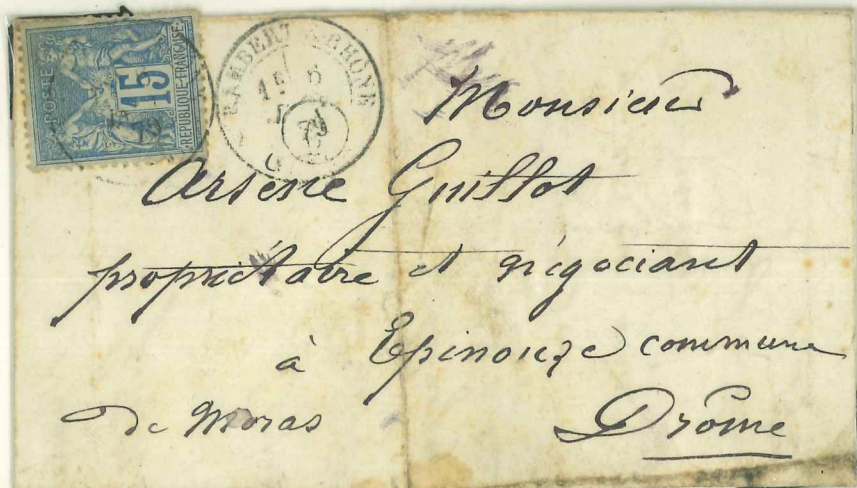 POSTE
15
REPUBLIQUE FRANCAISE
RAMBERT RHONE
6
79
Monsieur
Arsene Guillot
propriétaire et négociant
à Epinouze commune
de Moras Drôme